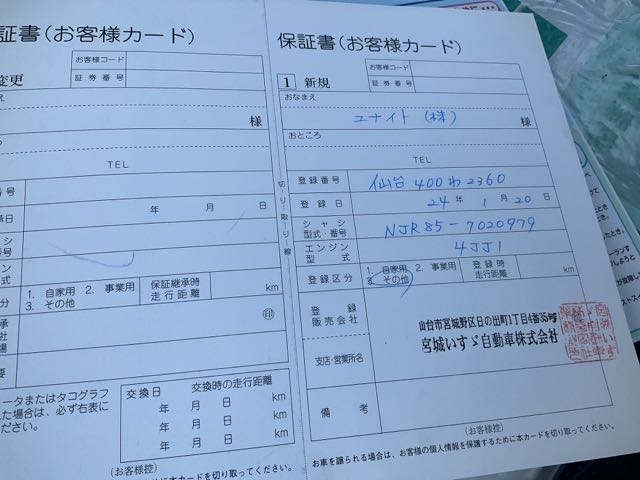 証書(お客様カード)
お客様コード
証券番号
変更
様
TEL
号
年 月 日
承日
シ
号
ン
式
分
1. 自家用 2. 事業用
3. その他
保証継承時
走行距離
km
承
社
場
印
要
ータまたはタコグラフ
た場合は、必ず右表に
ださい。
交換日 交換時の走行距離
年 月 日 km
年 月 日 km
年 月 日 km
(お客様控)
カードを切り取ってください。
切り取り線
保証書(お客様カード)
お客様コード
証券番号
1 新規
おなまえ
ユナイト(株) 様
おところ
TEL
登録番号 仙台 400わ2360
登録日 24年 1月 20日
シャシ
型式・番号 NJR85-7020979
エンジン
型式 4JJ1
登録区分 1. 自家用 2. 事業用
3. その他
登録時
走行距離 km
登録
販売会社
支店・営業所名
仙台市宮城野区日の出町1丁目4番35号
宮城いすゞ自動車株式会社
備考
(お客様控)
お車を譲られる場合は、お客様の個人情報を保護するために本カードを切り取ってください。